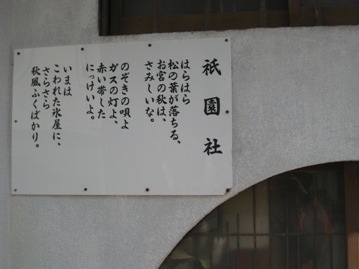 祇園社
はらはら
松の葉が落ちる、
お宮の秋は、
さみしいな。
のぞきの唄よ
ガスの灯よ、
赤い帯した
にっけいよ。
いまは
こわれた氷屋に、
さらさら
秋風ふくばかり。